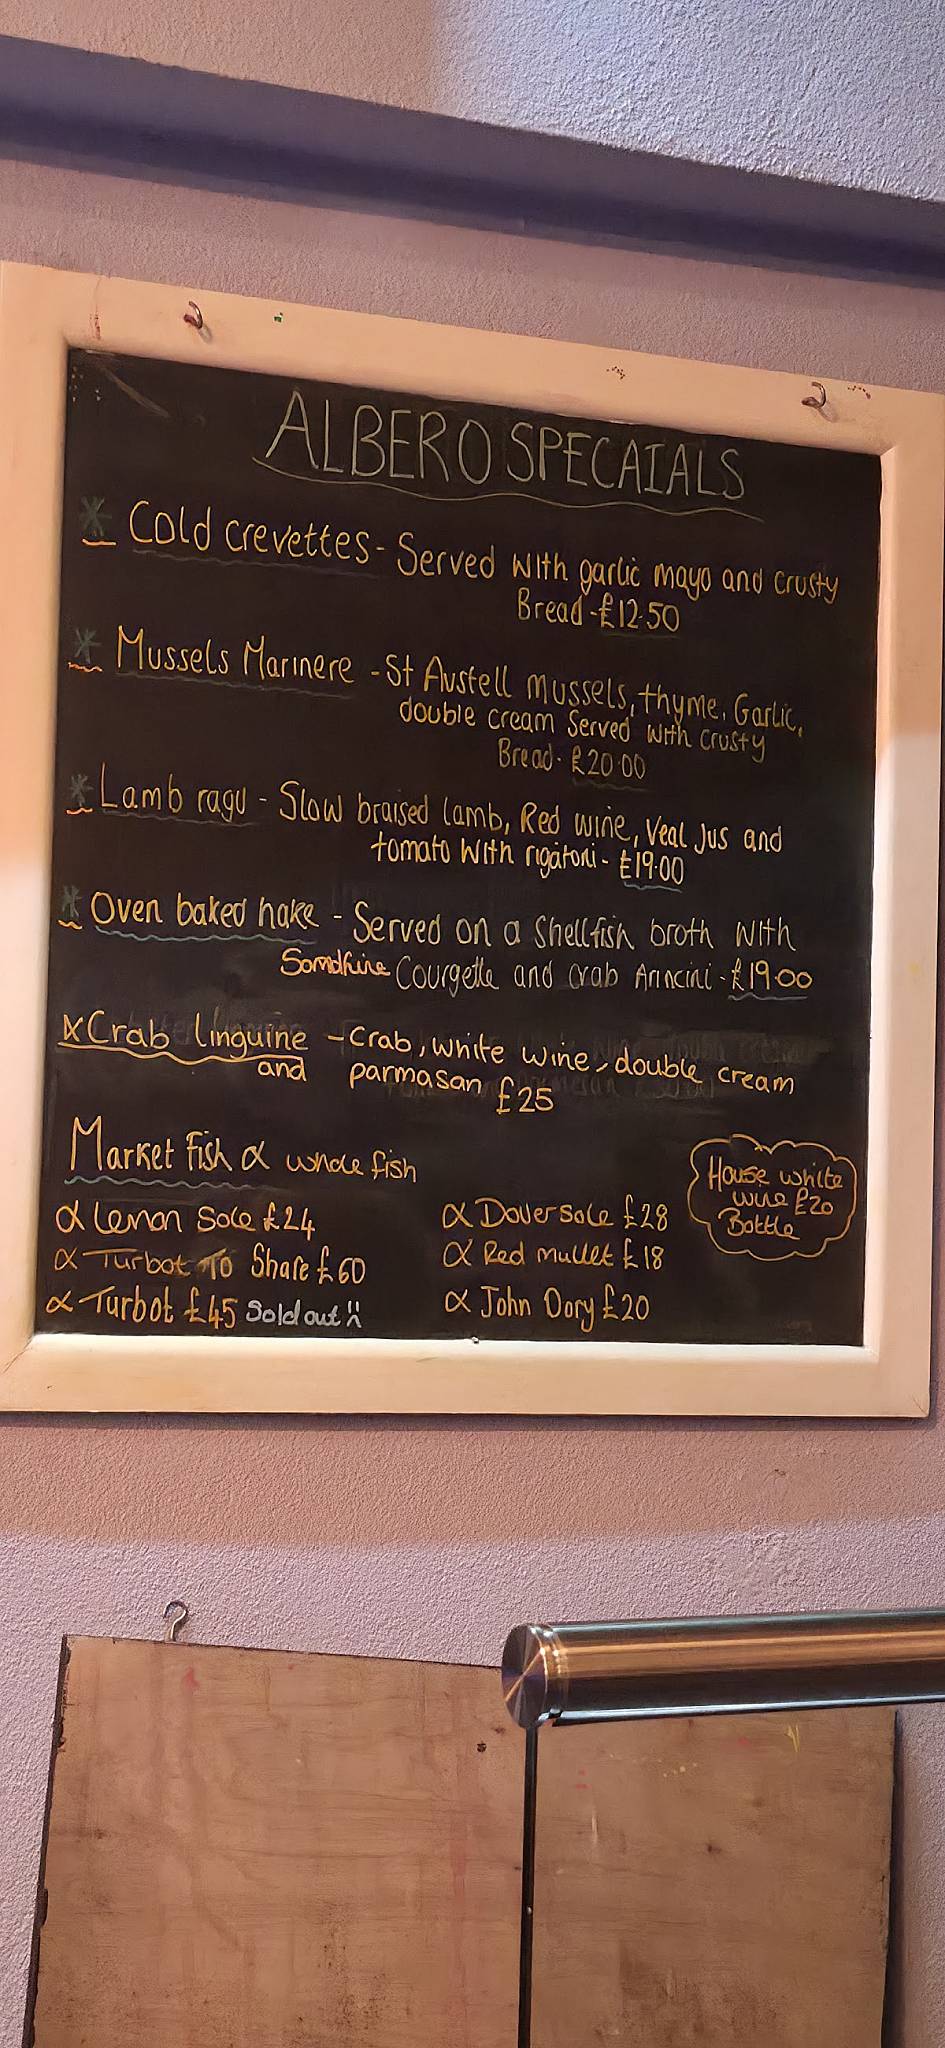 ALBERO SPECAIALS
Cold crevettes - Served with garlic mayo and crusty
Bread - £12.50
Mussels Marinere - St Austell mussels, thyme, Garlic,
double cream Served with crusty
Bread - £20.00
Lamb ragu - Slow braised lamb, Red wine, Veal Jus and
tomato with rigatoni - £19.00
Oven baked hake - Served on a Shellfish broth with
Courgette and crab Arincini - £19.00
Crab linguine - Crab, white wine, double cream
and parmasan £25
Market Fish whole fish
Lemon Sole £24
Turbot To Share £60
Turbot £45 Sold out
Dover sole £28
Red mullet £18
John Dory £20
House white
wine £20
Bottle